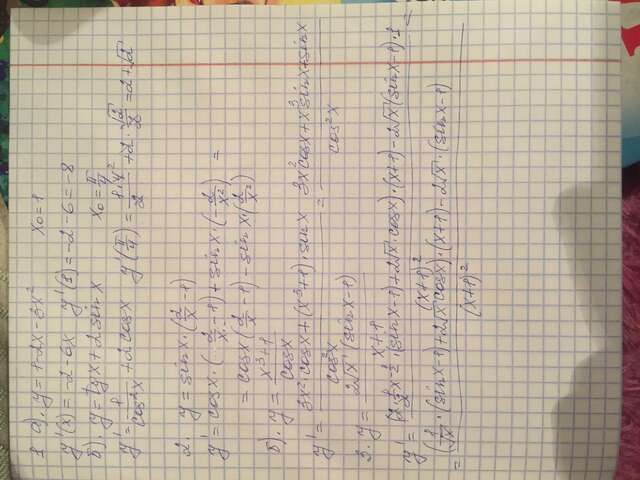 1 а). y = 1 - 2x - 3x² x₀ = 1
y'(x) = -2 - 6x y'(1) = -2 - 6 = -8
б). y = tgx + 2 sinx x₀ = π/4
y' = 1/cos²x + 2 cosx y'(π/4) = + 2 · √2/2 = 2 + √2
2. y = sinx · (2/x - 1)
y' = cosx · (2/x - 1) + sinx · (-2/x²) =
= cosx (2/x - 1) - sinx · (2/x²)
б). y = (x³+1)/cosx
y' = (3x² · cosx + (x³+1) · sinx)/cos²x = (3x² cosx + x³ sinx + sinx)/cos²x
3. y = 2√x · (sinx - 1)/(x+1)
y' = · (sinx - 1) + 2√x · cosx) · (x+1) - 2√x (sinx - 1) · 1/(x+1)² =
= (1/√x · (sinx - 1) + 2√x cosx) · (x+1) - 2√x · (sinx - 1)/(x+1)²